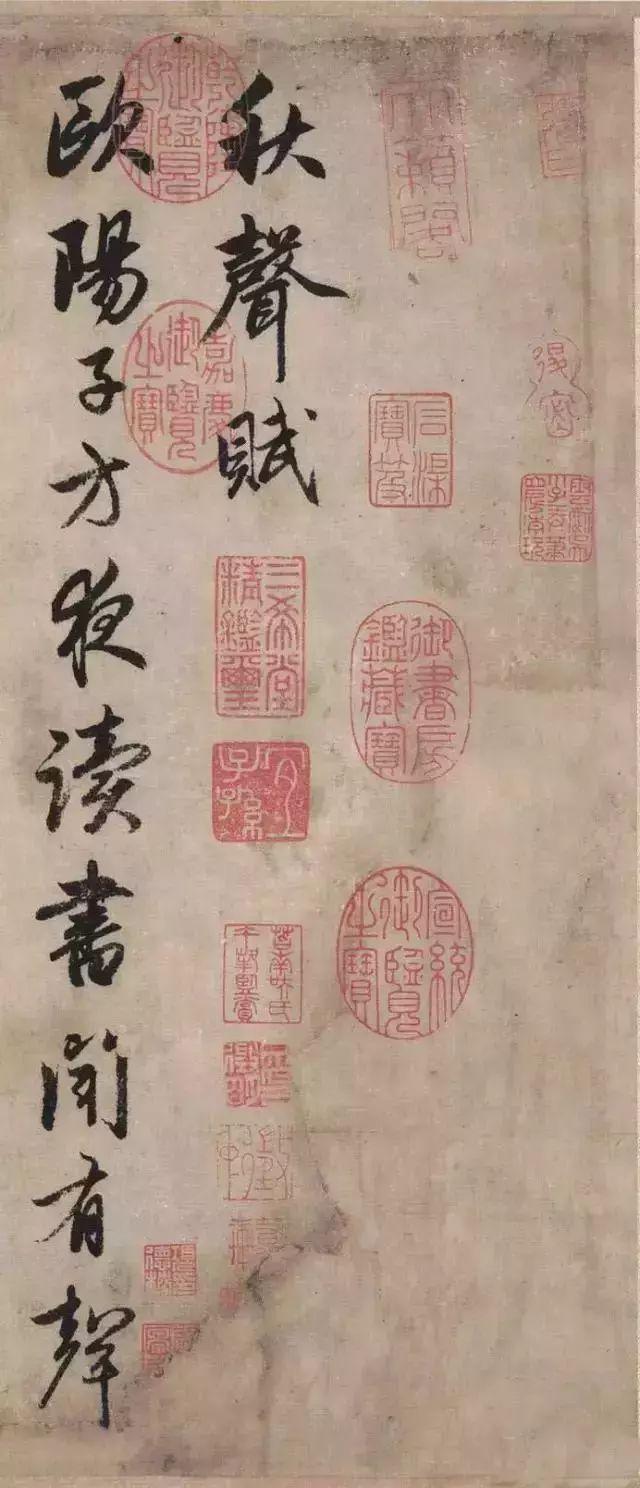 天籟閣
石渠寶笈
御書房鑑藏寶
宣統御覽之寶
秋聲賦
三希堂精鑑璽
宜子孫
乾隆御覽之寶
嘉慶御覽之寶
歐陽子方夜讀書聞有聲